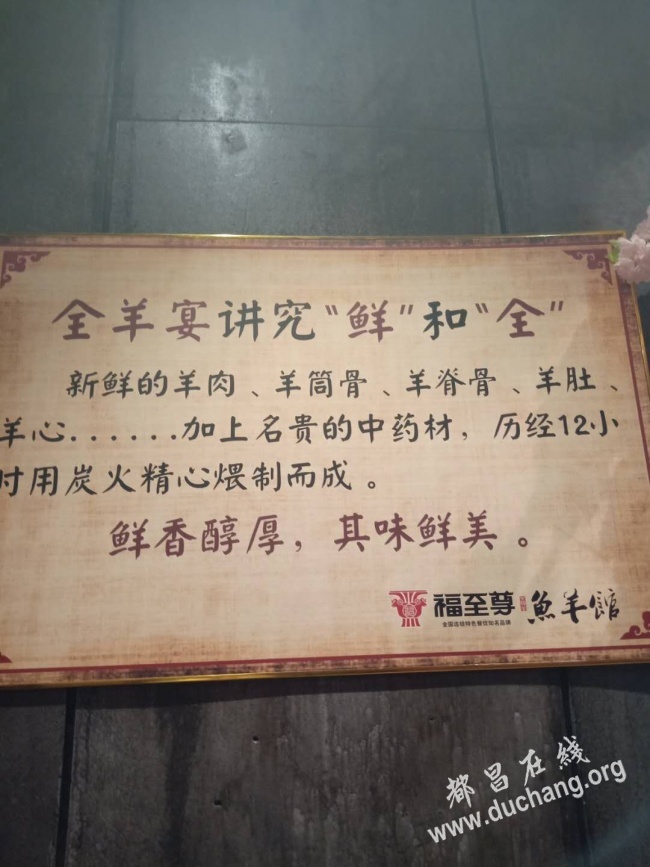 全羊宴讲究“鲜”和“全”
新鲜的羊肉、羊筒骨、羊脊骨、羊肚、
羊心......加上名贵的中药材，历经12小
时用炭火精心煨制而成。
鲜香醇厚，其味鲜美。
福至尊 魚羊館
全国连锁特色餐饮知名品牌
都昌在线
www.duchang.org